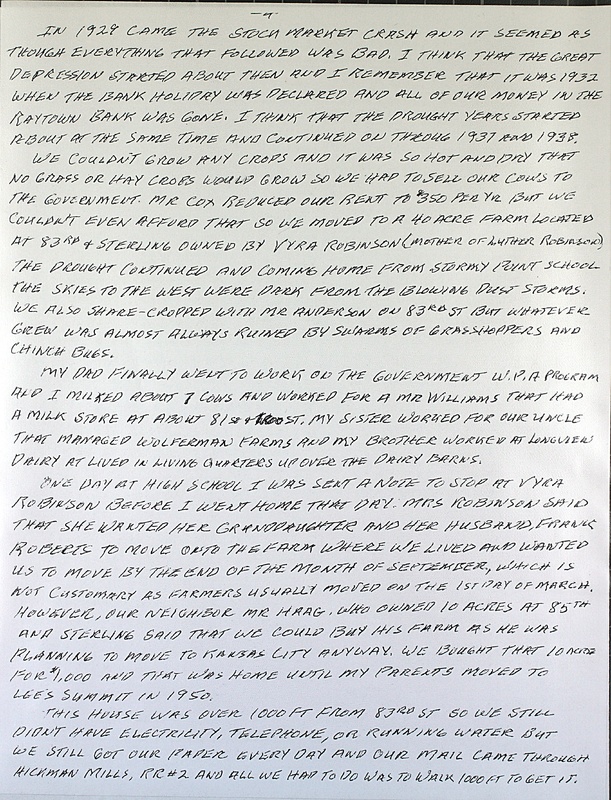 -4-
IN 1929 CAME THE STOCK MARKET CRASH AND IT SEEMED AS
THOUGH EVERYTHING THAT FOLLOWED WAS BAD. I THINK THAT THE GREAT
DEPRESSION STARTED ABOUT THEN AND I REMEMBER THAT IT WAS 1932
WHEN THE BANK HOLIDAY WAS DECLARED AND ALL OF OUR MONEY IN THE
RAYTOWN BANK WAS GONE. I THINK THAT THE DROUGHT YEARS STARTED
ABOUT AT THE SAME TIME AND CONTINUED ON THROUG 1937 AND 1938.
WE COULDN'T GROW ANY CROPS AND IT WAS SO HOT AND DRY THAT
NO GRASS OR HAY CROPS WOULD GROW SO WE HAD TO SELL OUR COWS TO
THE GOVERNMENT. MR COX REDUCED OUR RENT TO $350 PER YR BUT WE
COULDN'T EVEN AFFORD THAT SO WE MOVED TO A 40 ACRE FARM LOCATED
AT 83RD & STERLING OWNED BY VYRA ROBINSON (MOTHER OF LUTHER ROBINSON)
THE DROUGHT CONTINUED AND COMING HOME FROM STORMY POINT SCHOOL
THE SKIES TO THE WEST WERE DARK FROM THE BLOWING DUST STORMS.
WE ALSO SHARE-CROPPED WITH MR ANDERSON ON 83RD ST BUT WHATEVER
GREW WAS ALMOST ALWAYS RUINED BY SWARMS OF GRASSHOPPERS AND
CHINCH BUGS.
MY DAD FINALLY WENT TO WORK ON THE GOVERNMENT W.P.A PROGRAM
AND I MILKED ABOUT 7 COWS AND WORKED FOR A MR WILLIAMS THAT HAD
A MILK STORE AT ABOUT 81ST & TROOST. MY SISTER WORKED FOR OUR UNCLE
THAT MANAGED WOLFERMAN FARMS AND MY BROTHER WORKED AT LONGVIEW
DAIRY AT LIVED IN LIVING QUARTERS UP OVER THE DAIRY BARNS.
ONE DAY AT HIGH SCHOOL I WAS SENT A NOTE TO STOP AT VYRA
ROBINSON BEFORE I WENT HOME THAT DAY. MRS ROBINSON SAID
THAT SHE WANTED HER GRANDDAUGHTER AND HER HUSBAND, FRANK
ROBERTS TO MOVE ONTO THE FARM WHERE WE LIVED AND WANTED
US TO MOVE BY THE END OF THE MONTH OF SEPTEMBER, WHICH IS
NOT CUSTOMARY AS FARMERS USUALLY MOVED ON THE 1ST DAY OF MARCH.
HOWEVER, OUR NEIGHBOR MR HAAG. WHO OWNED 10 ACRES AT 85TH
AND STERLING SAID THAT WE COULD BUY HIS FARM AS HE WAS
PLANNING TO MOVE TO KANSAS CITY ANYWAY. WE BOUGHT THAT 10 ACRE
FOR $1,000 AND THAT WAS HOME UNTIL MY PARENTS MOVED TO
LEES SUMMIT IN 1950.
THIS HOUSE WAS OVER 1000 FT FROM 83RD ST SO WE STILL
DIDN'T HAVE ELECTRICITY, TELEPHONE, OR RUNNING WATER BUT
WE STILL GOT OUR PAPER EVERY DAY AND OUR MAIL CAME THROUGH
HICKMAN MILLS, RR#2 AND ALL WE HAD TO DO WAS TO WALK 1000 FT TO GET IT.